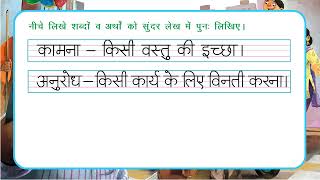 नीचे लिखे शब्दों व अर्थों को सुंदर लेख में पुनः लिखिए।
कामना – किसी वस्तु की इच्छा।
अनुरोध–किसी कार्य के लिए विनती करना।